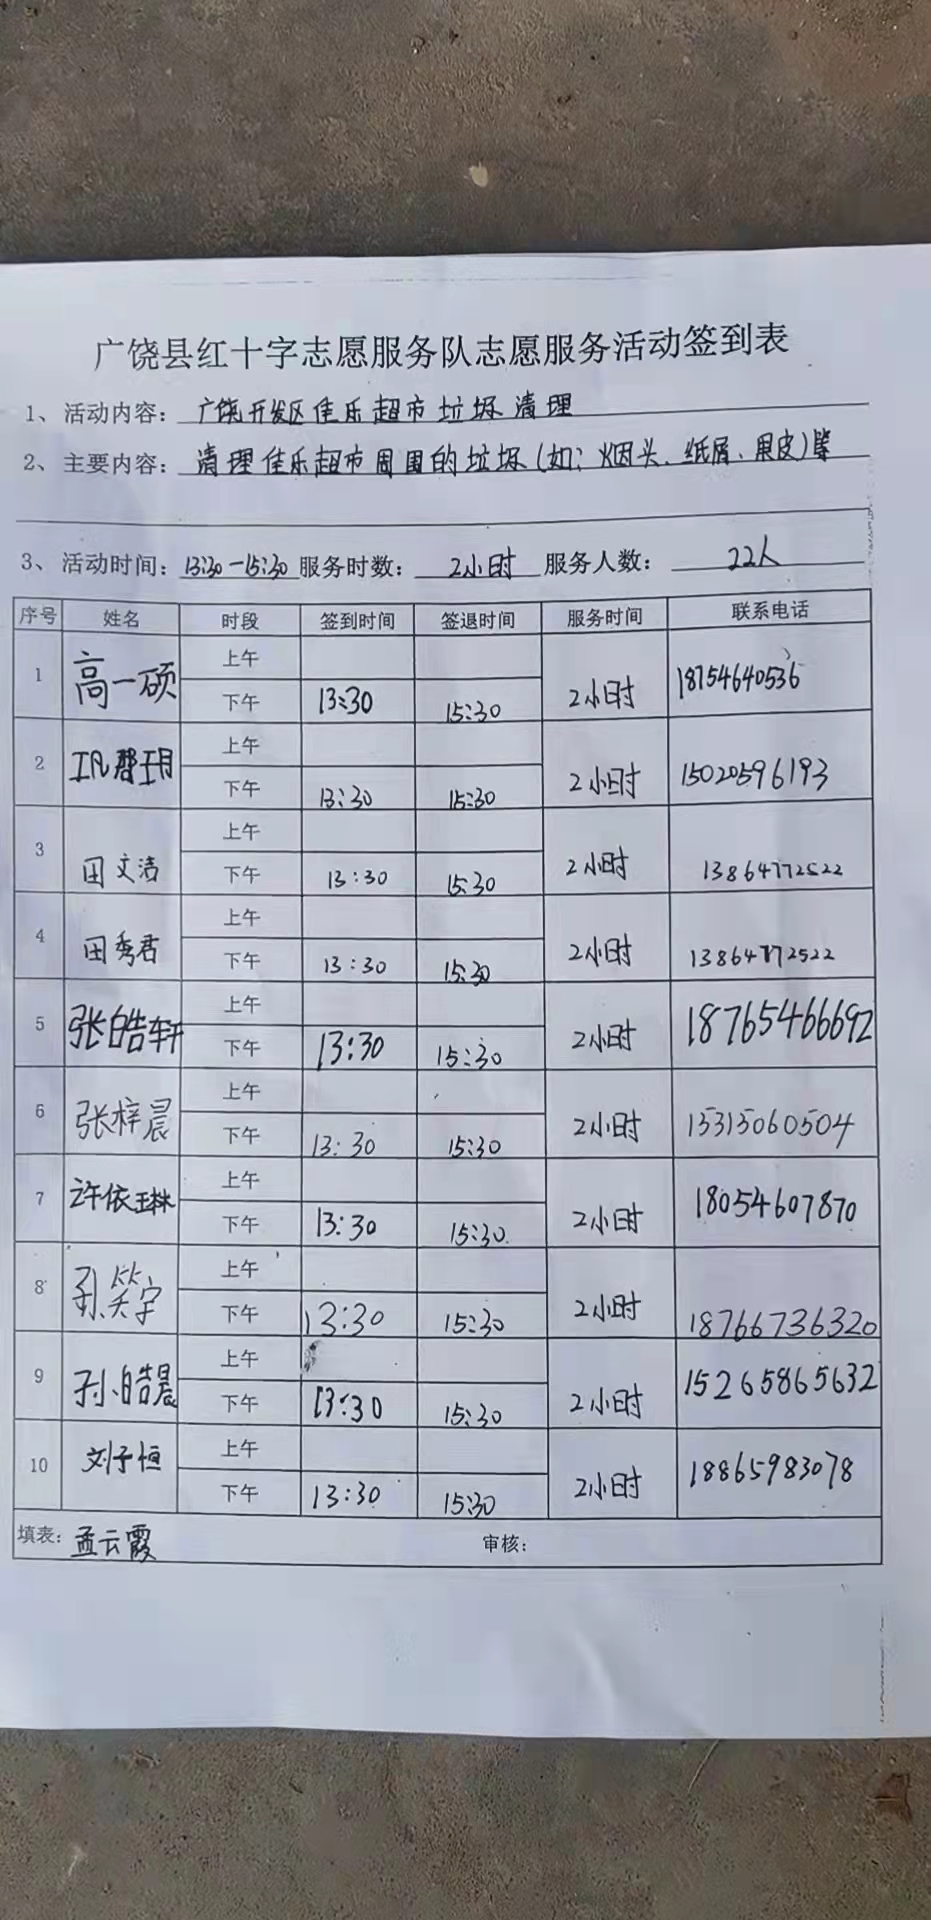 广饶县红十字志愿服务队志愿服务活动签到表
1、活动内容：广饶开发区佳乐超市垃圾清理
2、主要内容：清理佳乐超市周围的垃圾(如：烟头、纸屑、果皮)等
3、活动时间：13:30-15:30 服务时数：2小时 服务人数：22人
序号 姓名 时段 签到时间 签退时间 服务时间 联系电话
1 高一硕 上午
下午 13:30 15:30 2小时 18754640536
2 上午
下午 13:30 15:30 2小时 15020596193
3 田文洁 上午
下午 13:30 15:30 2小时 13864772522
4 田秀君 上午
下午 13:30 15:30 2小时 13864772522
5 张皓轩 上午
下午 13:30 15:30 2小时 18765466692
6 张梓晨 上午
下午 13:30 15:30 2小时 15315060504
7 许依琳 上午
下午 13:30 15:30 2小时 18054607870
8 孙笑宇 上午
下午 13:30 15:30 2小时 18766736320
9 孙皓晨 上午
下午 13:30 15:30 2小时 15265865632
10 刘子恒 上午
下午 13:30 15:30 2小时 18865983078
填表：孟云霞 审核：